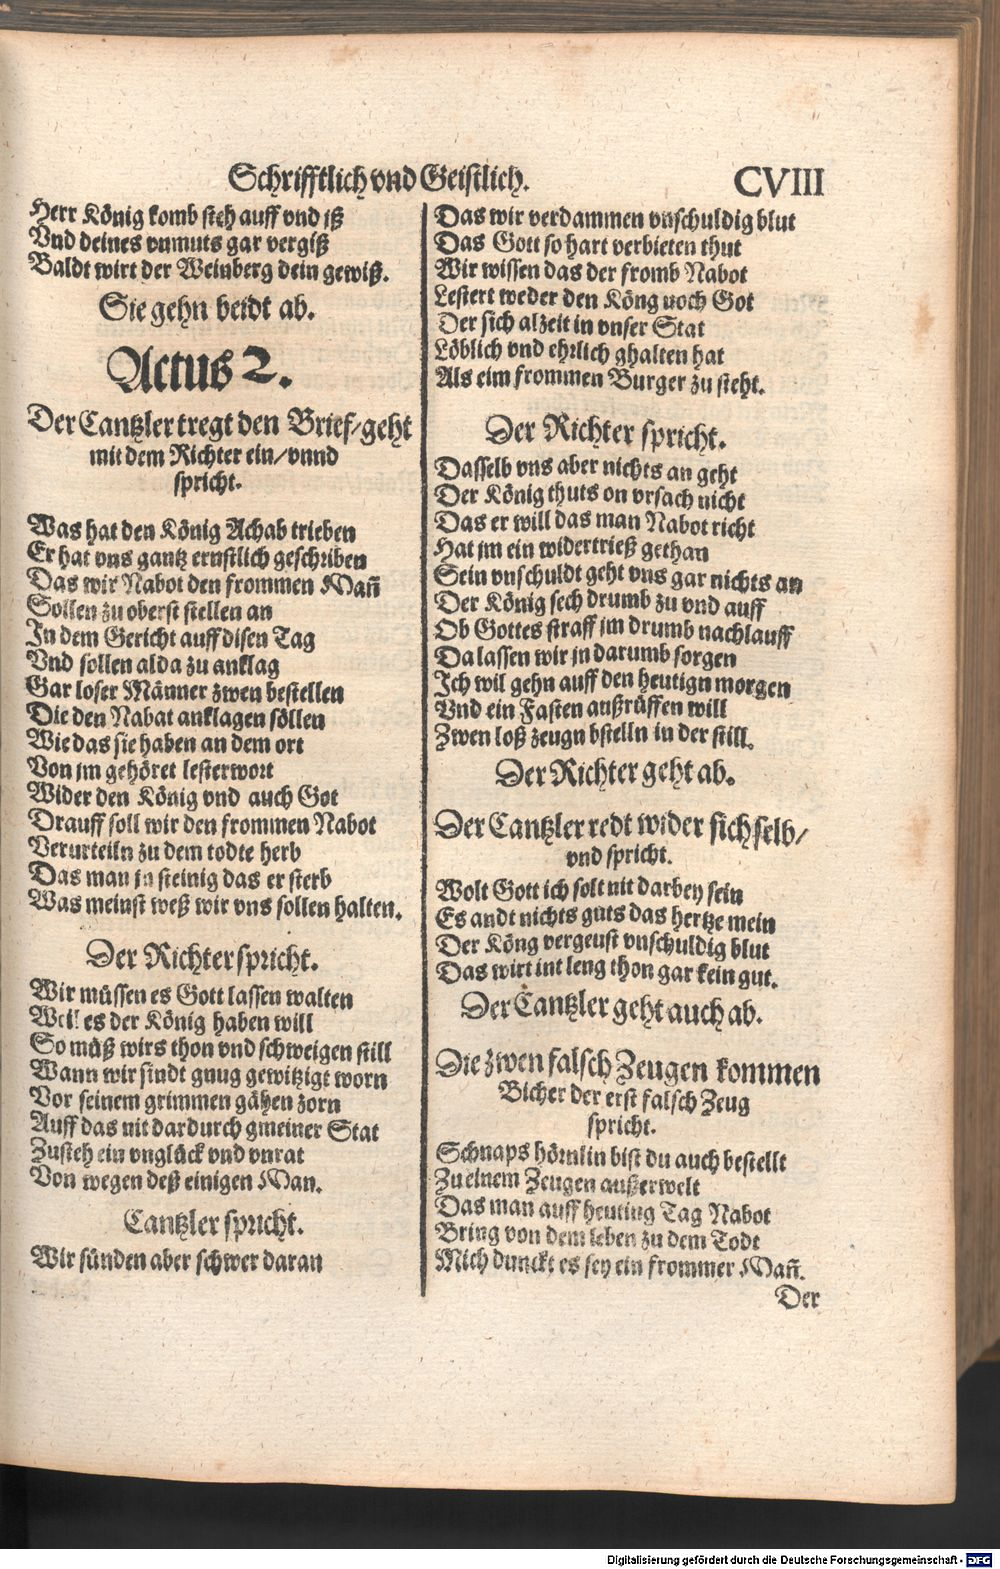 Schrifftlich vnd Geistlich. CVIII
Herr König komb steh auff vnd iß
Vnd deines vnmuts gar vergiß
Baldt wirt der Weinberg dein gewiß.
Sie gehn beidt ab.
Actus 2.
Der Cantzler tregt den Brief/ geht
mit dem Richter ein/ vnnd
spricht.
Was hat den König Achab trieben
Er hat vns gantz ernstlich geschriben
Das wir Nabot den frommen Mañ
Sollen zu oberst stellen an
In dem Gericht auff disen Tag
Vnd sollen alda zu anklag
Gar loser Männer zwen bestellen
Die den Nabat anklagen söllen
Wie das sie haben an dem ort
Von jm gehöret lesterwort
Wider den König vnd auch Got
Drauff soll wir den frommen Nabot
Verurteiln zu dem todte herb
Das man jn steinig das er sterb
Was meinst weß wir vns sollen halten.
Der Richter spricht.
Wir müssen es Gott lassen walten
Weil es der König haben will
So můß wirs thon vnd schweigen still
Wann wir sindt gnug gewitzigt worn
Vor seinem grimmen gähen zorn
Auff das nit dardurch gmeiner Stat
Zusteh ein vnglück vnd vnrat
Von wegen deß einigen Man.
Cantzler spricht.
Wir sünden aber schwer daran
Das wir verdammen vnschuldig blut
Das Gott so hart verbieten thut
Wir wissen das der fromb Nabot
Lestert weder den Köng noch Got
Der sich alzeit in vnser Stat
Löblich vnd ehrlich ghalten hat
Als eim frommen Burger zu steht.
Der Richter spricht.
Dasselb vns aber nichts an geht
Der König thuts on vrsach nicht
Das er will das man Nabot richt
Hat jm ein widertrieß gethan
Sein vnschuldt geht vns gar nichts an
Der König sech drumb zu vnd auff
Ob Gottes straff jm drumb nachlauff
Da lassen wir jn darumb sorgen
Ich wil gehn auff den heutign morgen
Vnd ein Fasten außrüffen will
Zwen loß zeugn bstelln in der still.
Der Richter geht ab.
Der Cantzler redt wider sich selb/
vnd spricht.
Wolt Gott ich solt nit darbey sein
Es andt nichts guts das hertze mein
Der Köng vergeust vnschuldig blut
Das wirt int leng thon gar kein gut.
Der Cantzler geht auch ab.
Die zwen falsch Zeugen kommen
Bicher der erst falsch Zeug
spricht.
Schnaps hörnlin bist du auch bestellt
Zu einem Zeugen außerwelt
Das man auff heuting Tag Nabot
Bring von dem leben zu dem Todt
Mich dunckt es sey ein frommer Mañ.
Der
Digitalisierung gefördert durch die Deutsche Forschungsgemeinschaft - DFG